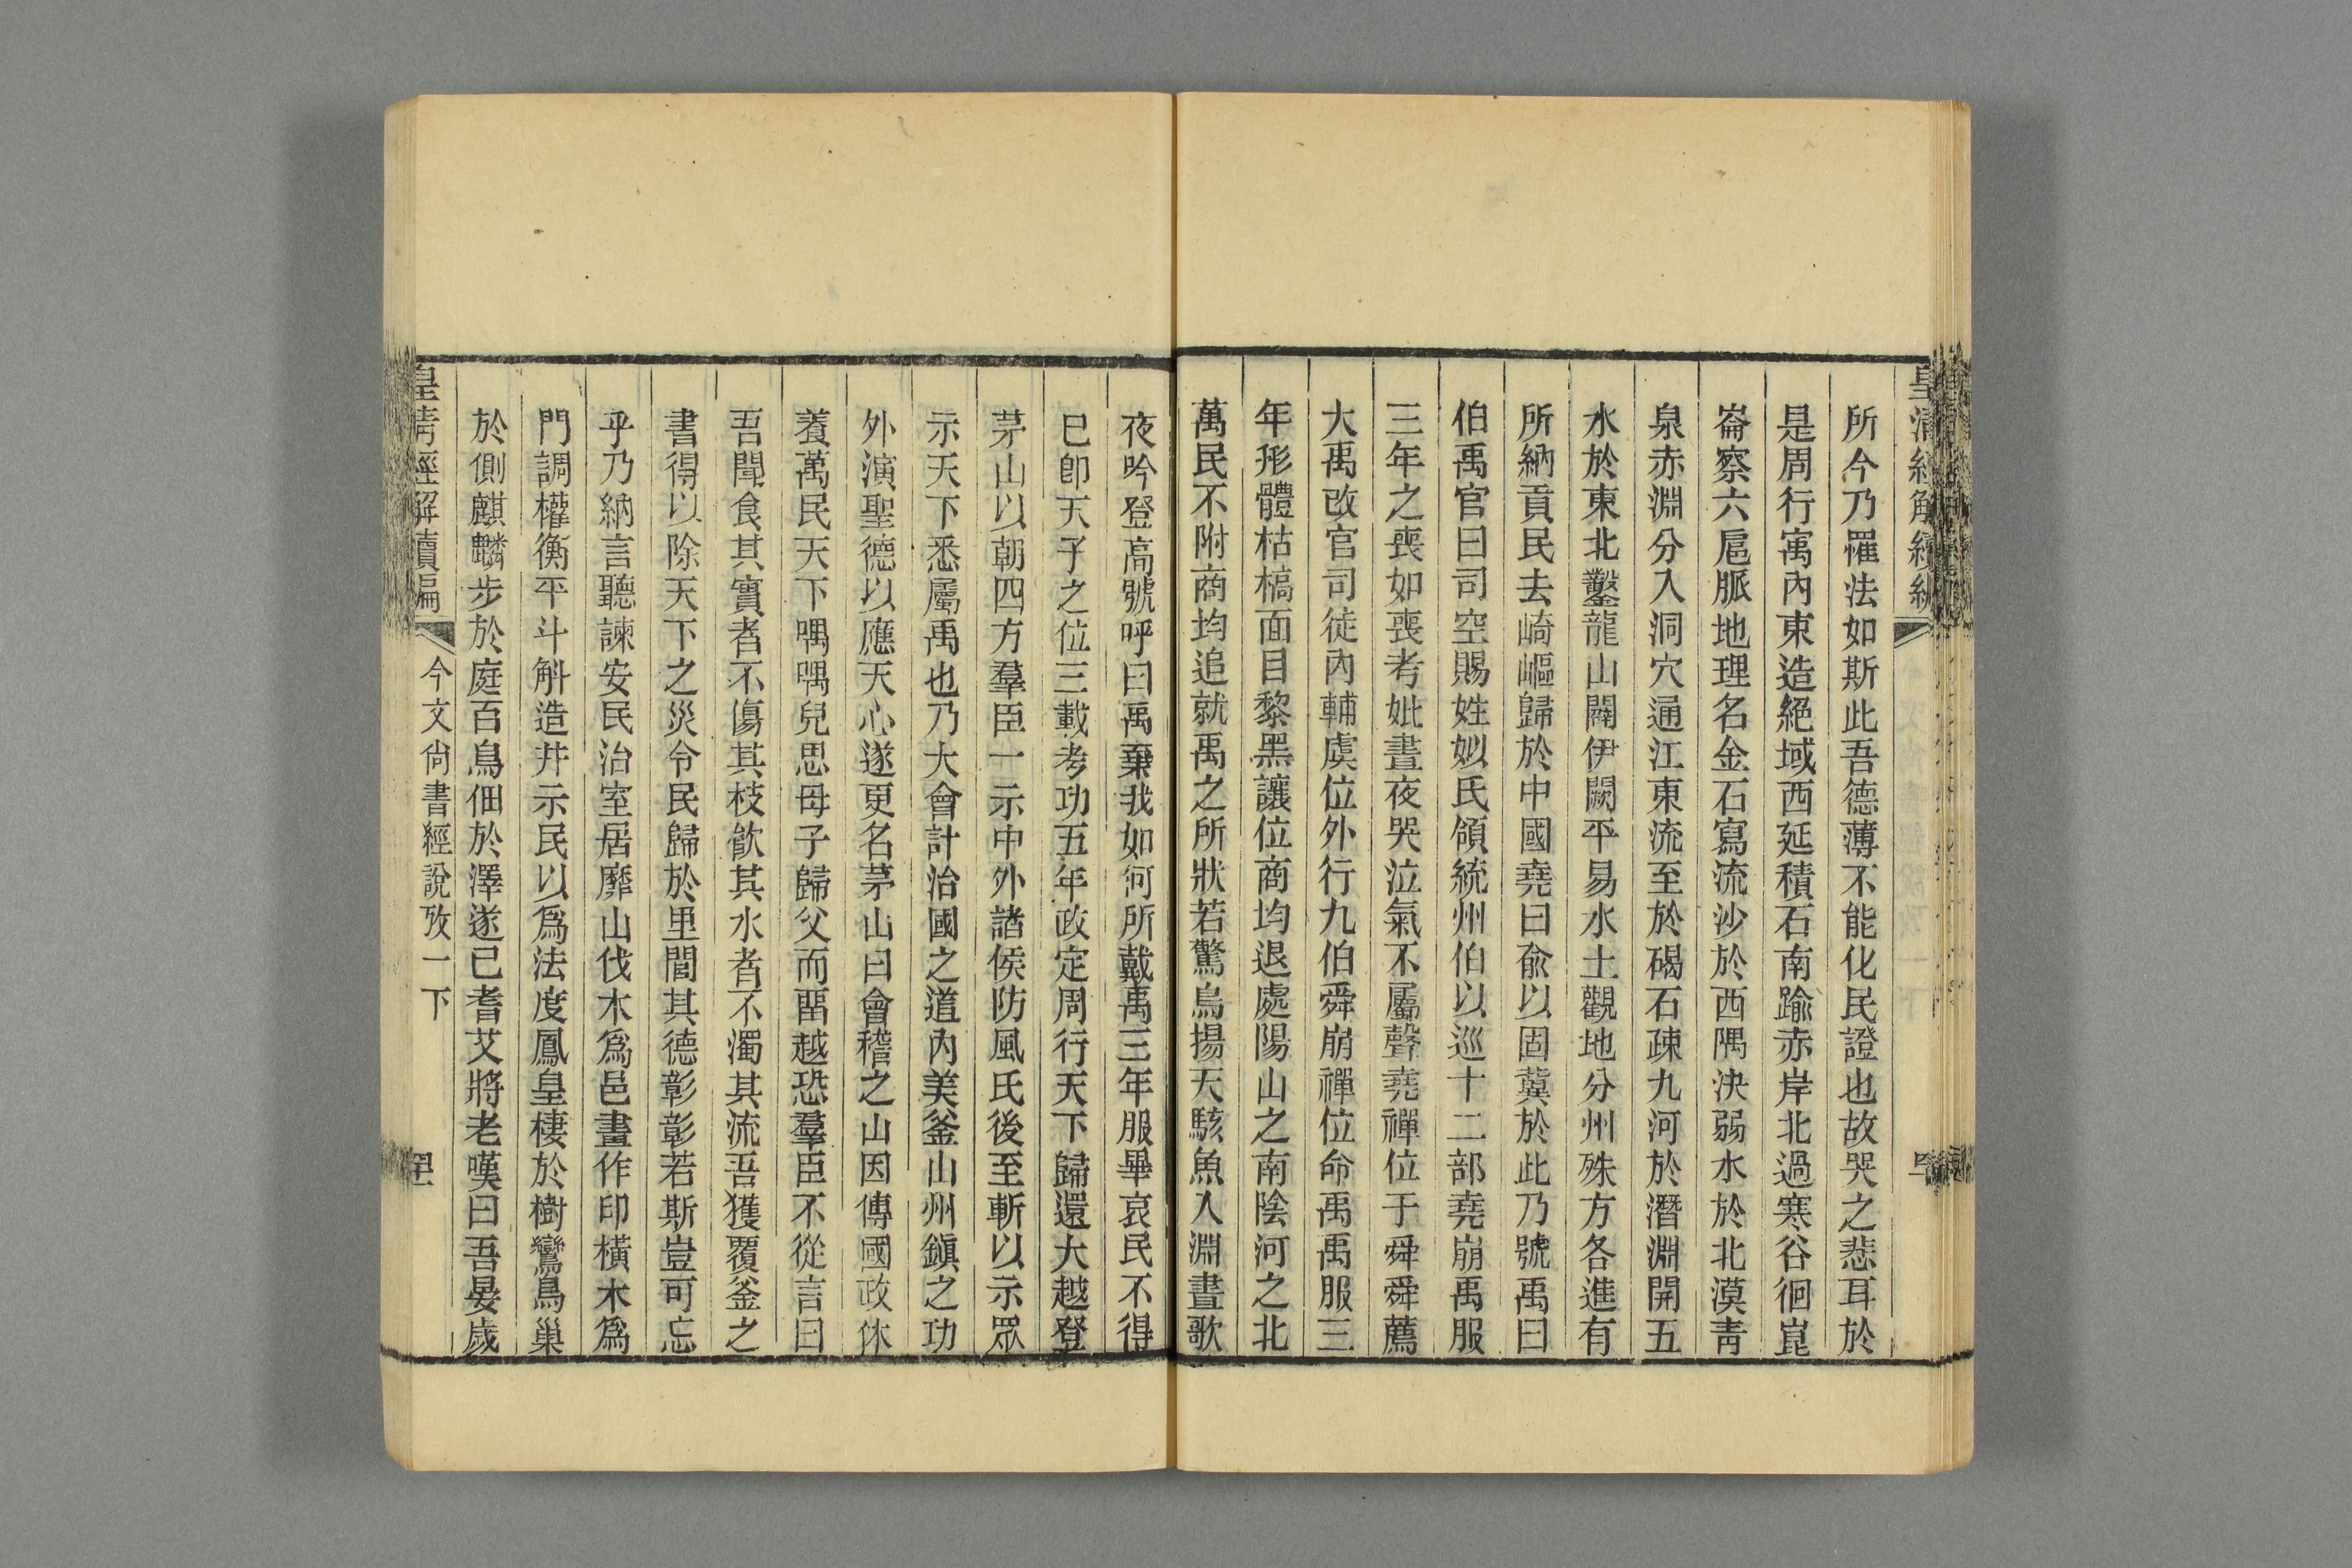 所今乃罹法如斯此吾德薄不能化民證也故哭之悲耳於
是周行寓內東造絕域西延積石南踰赤岸北過寒谷徊崑
崙察六扈脈地理名金石寫流沙於西隅決弱水於北漠青
泉赤淵分入洞穴通江東流至於碣石疎九河於潛淵開五
水於東北鑿龍山闢伊闕平易水土觀地分州殊方各進有
所納貢民去崎嶇歸於中國堯曰俞以固冀於此乃號禹曰
伯禹官曰司空賜姓姒氏領統州伯以巡十二部堯崩禹服
三年之喪如喪考妣晝夜哭泣氣不屬聲堯禪位于舜舜薦
大禹改官司徒內輔虞位外行九伯舜崩禪位命禹禹服三
年形體枯槁面目黎黑讓位商均退處陽山之南陰河之北
萬民不附商均追就禹之所狀若驚鳥揚天駭魚入淵晝歌
夜吟登高號呼曰禹棄我如何所戴禹三年服畢哀民不得
已卽天子之位三載考功五年政定周行天下歸還大越登
茅山以朝四方羣臣一示中外諸侯防風氏後至斬以示眾
示天下悉屬禹也乃大會計治國之道內美釜山州鎮之功
外演聖德以應天心遂更名茅山曰會稽之山因傳國政休
養萬民天下喁喁兒思母子歸父而畱越恐羣臣不從言曰
吾聞食其實者不傷其枝飲其水者不濁其流吾獲覆釜之
書得以除天下之災令民歸於里閭其德彰彰若斯豈可忘
乎乃納言聽諫安民治室居靡山伐木爲邑畫作印橫木爲
門調權衡平斗斛造井示民以爲法度鳳皇棲於樹鸞鳥巢
於側麒麟步於庭百鳥佃於澤遂已耆艾將老嘆曰吾晏歲
皇清經解續編 今文尚書經說攷一下